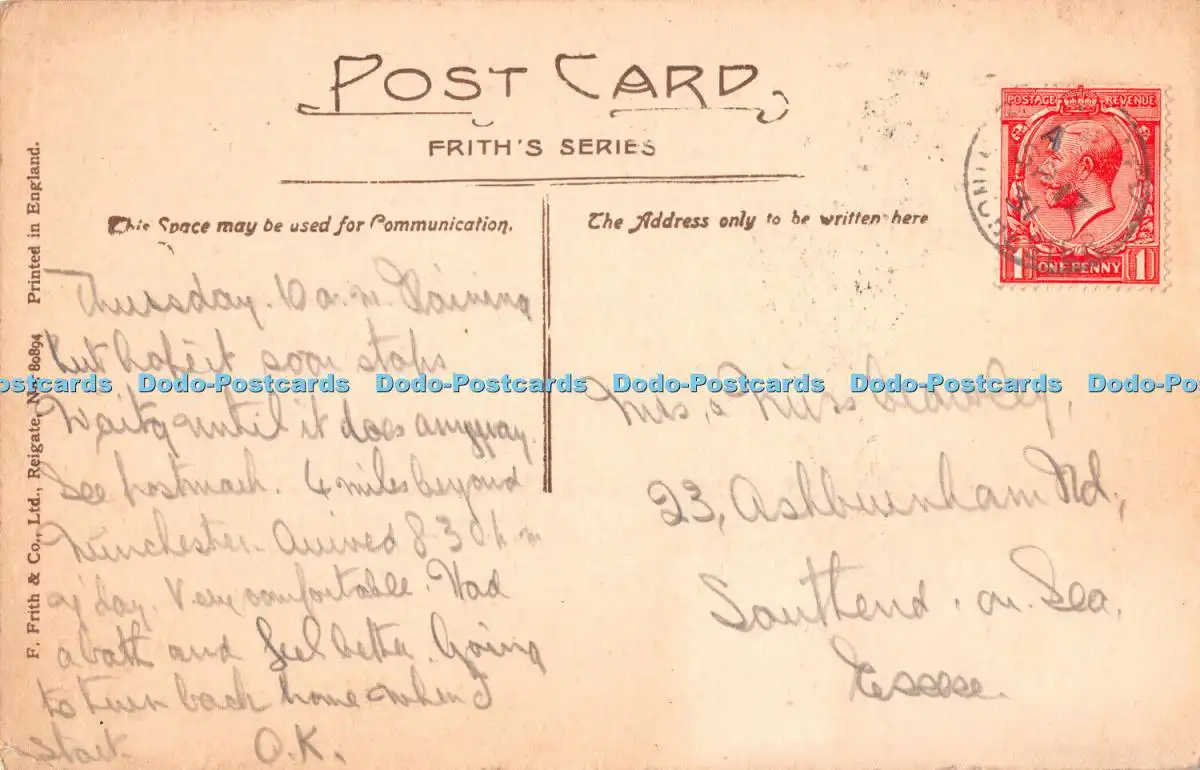 POST CARD
FRITH'S SERIES
This Space may be used for Communication.
The Address only to be written here
POSTAGE REVENUE
1 ONE PENNY 1
F. Frith & Co., Ltd., Reigate. No. 80894 Printed in England.
Thursday. 10 a.m. Raining
but hope it soon stops
Waitg until it does anyway.
See postmark. 4 miles beyond
Winchester. Arrived 8.30 p.m
day. Very comfortable. Had
a bath and feel better. Going
to turn back home when I
start. O.K.
Mrs, & Miss
23, Ashburnham Rd,
Southend. on. Sea.
Essex.
Dodo-Postcards Dodo-Postcards Dodo-Postcards Dodo-Postcards Dodo-Postcards